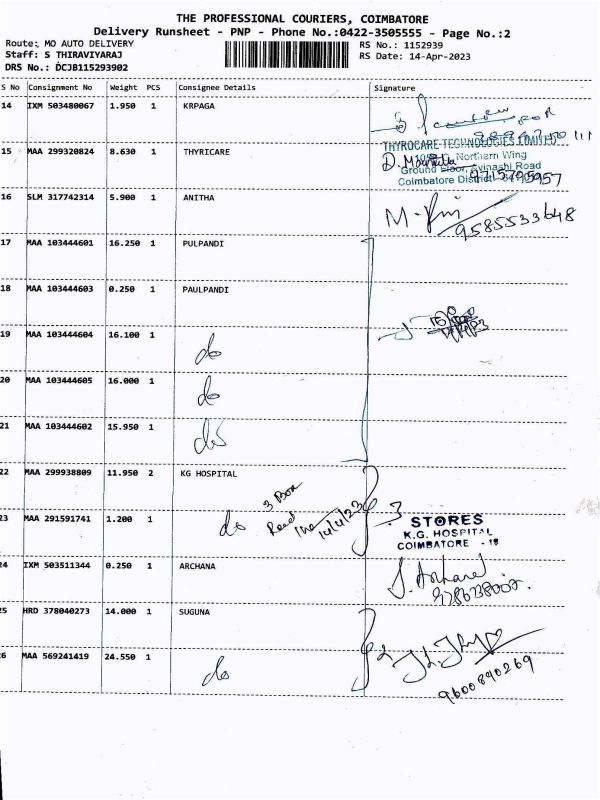 THE PROFESSIONAL COURIERS, COIMBATORE
Delivery Runsheet - PNP - Phone No.:0422-3505555 - Page No.:2
Route: MO AUTO DELIVERY
RS No.: 1152939
Staff: S THIRAVIYARAJ
RS Date: 14-Apr-2023
DRS No.: DCJB115293902
S No Consignment No Weight PCS Consignee Details Signature
14 IXM 503480067 1.950 1 KRPAGA
15 MAA 299320824 8.630 1 THYRICARE
THYROCARE TECHNOLOGIES LIMITED
Northern Wing
Ground Floor, Avinashi Road
Coimbatore District
9715795957
16 SLM 317742314 5.900 1 ANITHA
9585533648
17 MAA 103444601 16.250 1 PULPANDI
18 MAA 103444603 0.250 1 PAULPANDI
19 MAA 103444604 16.100 1 do
20 MAA 103444605 16.000 1 do
21 MAA 103444602 15.950 1 do
22 MAA 299938809 11.950 2 KG HOSPITAL
3 Box
Recd
14/4/23
23 MAA 291591741 1.200 1 do
3
STORES
K.G. HOSPITAL
COIMBATORE - 18
24 IXM 503511344 0.250 1 ARCHANA
25 HRD 378040273 14.000 1 SUGUNA
26 MAA 569241419 24.550 1 do
2
9600890269